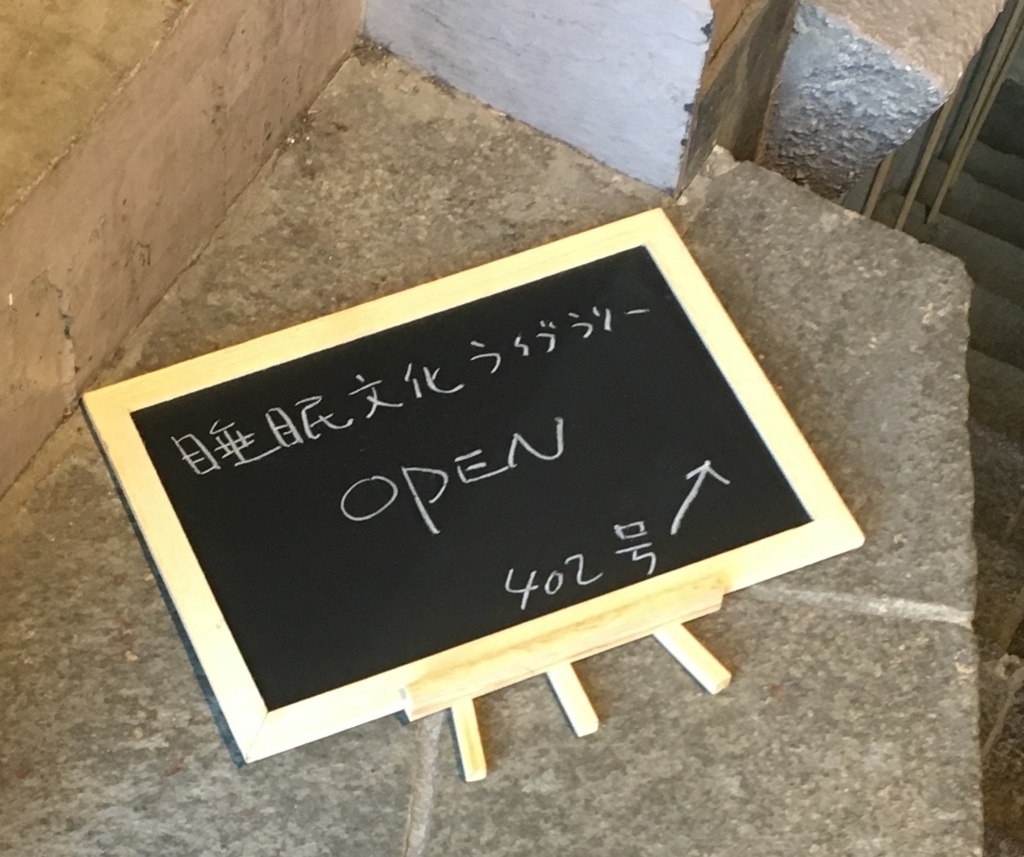 睡眠文化ライブラリー
OPEN
402号 ↗